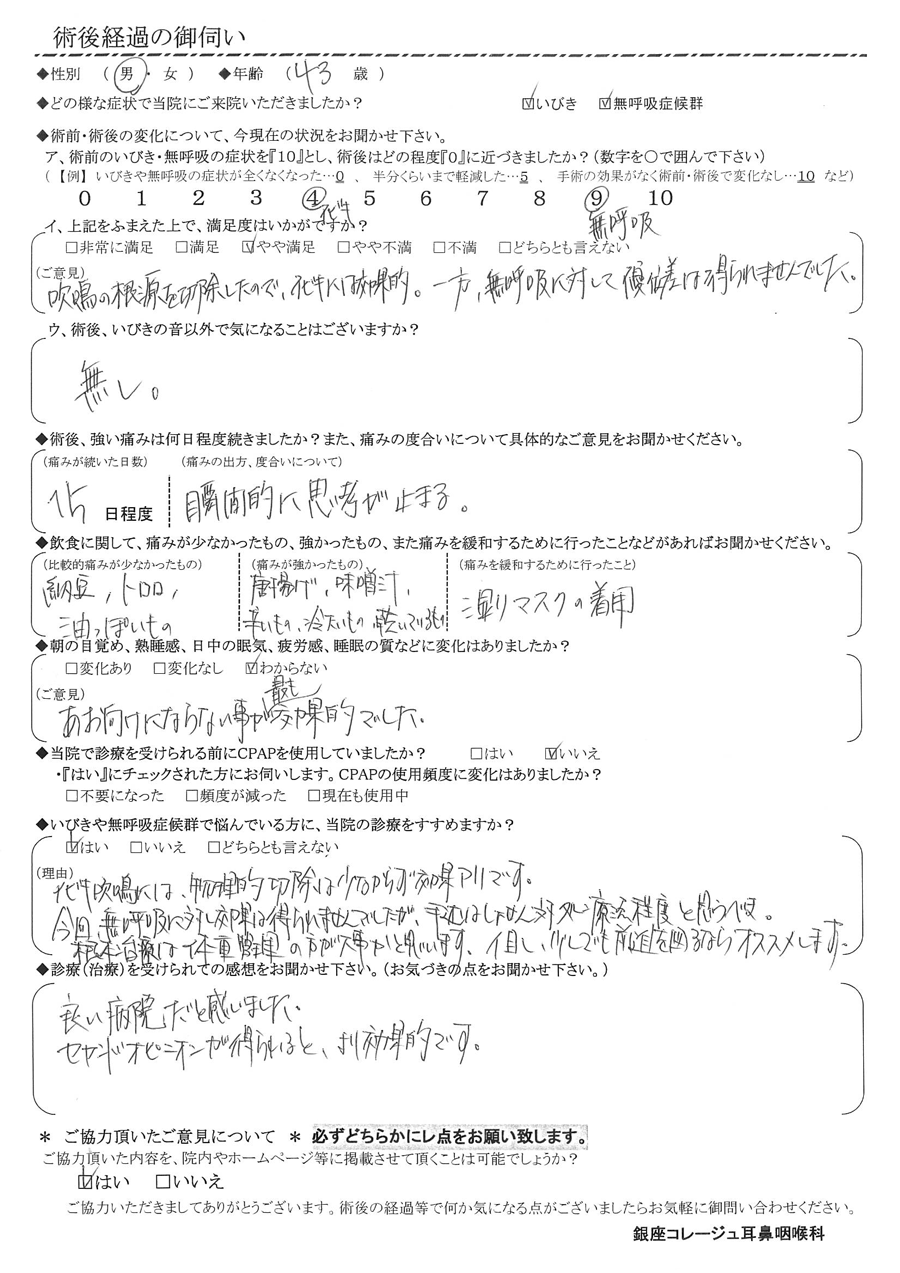 術後経過の御伺い
◆性別 (男・女) ◆年齢 (43 歳)
◆どの様な症状で当院にご来院いただきましたか? ☑いびき ☑無呼吸症候群
◆術前・術後の変化について、今現在の状況をお聞かせ下さい。
ア、術前のいびき・無呼吸の症状を『10』とし、術後はどの程度『0』に近づきましたか?(数字を〇で囲んで下さい)
(【例】いびきや無呼吸の症状が全くなくなった…0 、 半分くらいまで軽減した…5 、 手術の効果がなく術前・術後で変化なし…10 など)
0 1 2 3 4 5 6 7 8 9 10
無呼吸
イ、上記をふまえた上で、満足度はいかがですか?
□非常に満足 □満足 ☑やや満足 □やや不満 □不満 □どちらとも言えない
(ご意見)
吹鳴の根源を切除したので、は効果的。一方、無呼吸に対して優位差は得られませんでした。
ウ、術後、いびきの音以外で気になることはございますか?
無し。
◆術後、強い痛みは何日程度続きましたか?また、痛みの度合いについて具体的なご意見をお聞かせください。
(痛みが続いた日数) (痛みの出方、度合いについて)
日程度 瞬間的に思考が止まる。
◆飲食に関して、痛みが少なかったもの、強かったもの、また痛みを緩和するために行ったことなどがあればお聞かせください。
(比較的痛みが少なかったもの) (痛みが強かったもの) (痛みを緩和するために行ったこと)
納豆,トロロ, 唐揚げ,味噌汁, 湿りマスクの着用
油っぽいもの 辛いもの,冷たいもの,乾いているもの
◆朝の目覚め、熟睡感、日中の眠気、疲労感、睡眠の質などに変化はありましたか?
□変化あり □変化なし ☑わからない
(ご意見)
あお向けにならない事が最も効果的でした。
◆当院で診療を受けられる前にCPAPを使用していましたか? □はい ☑いいえ
・『はい』にチェックされた方にお伺いします。CPAPの使用頻度に変化はありましたか?
□不要になった □頻度が減った □現在も使用中
◆いびきや無呼吸症候群で悩んでいる方に、当院の診療をすすめますか?
☑はい □いいえ □どちらとも言えない
(理由)
吹鳴には、物理的切除は少なからず効果アリです。
今回、無呼吸に対し効果は得られませんでしたが、手術はしょせん対処療法程度と思うべき。
根本治療は体重管理の方が大事かと思います。但し、少しでも前進を図るならオススメします。
◆診療(治療)を受けられての感想をお聞かせ下さい。(お気づきの点をお聞かせ下さい。)
良い病院だと感じました。
セカンドオピニオンが得られると、より効果的です。
* ご協力頂いたご意見について * 必ずどちらかにレ点をお願い致します。
ご協力頂いた内容を、院内やホームページ等に掲載させて頂くことは可能でしょうか?
☑はい □いいえ
ご協力いただきましてありがとうございます。術後の経過等で何か気になる点がございましたらお気軽に御問い合わせください。
銀座コレージュ耳鼻咽喉科